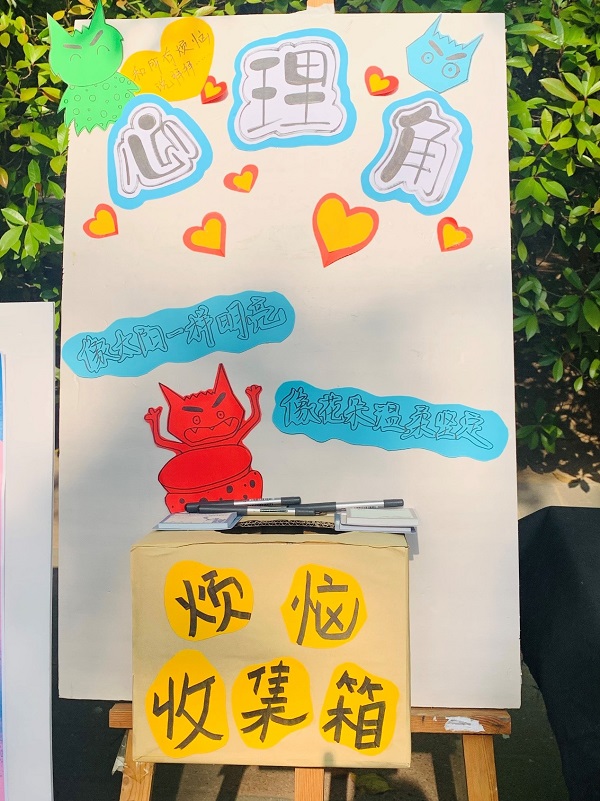 和所有烦恼
说拜拜
心理角
像太阳一样明亮
像花朵温柔坚定
烦恼
收集箱